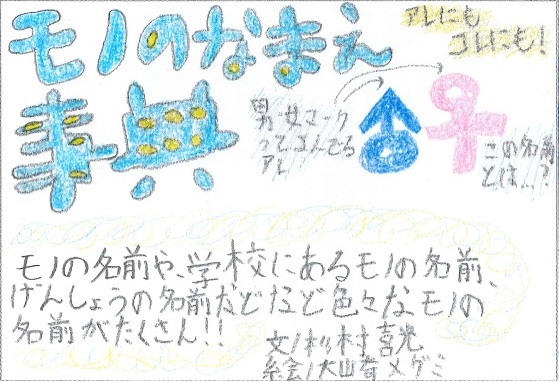 アレにも
コレにも!
モノのなまえ
事典
男・女マーク
ってよんでる
アレ
この名前
とは…?
モノの名前や、学校にあるモノの名前、
げんしょうの名前などなど色々なモノの
名前がたくさん!!
文/杉村喜光
絵/大山奇メグミ